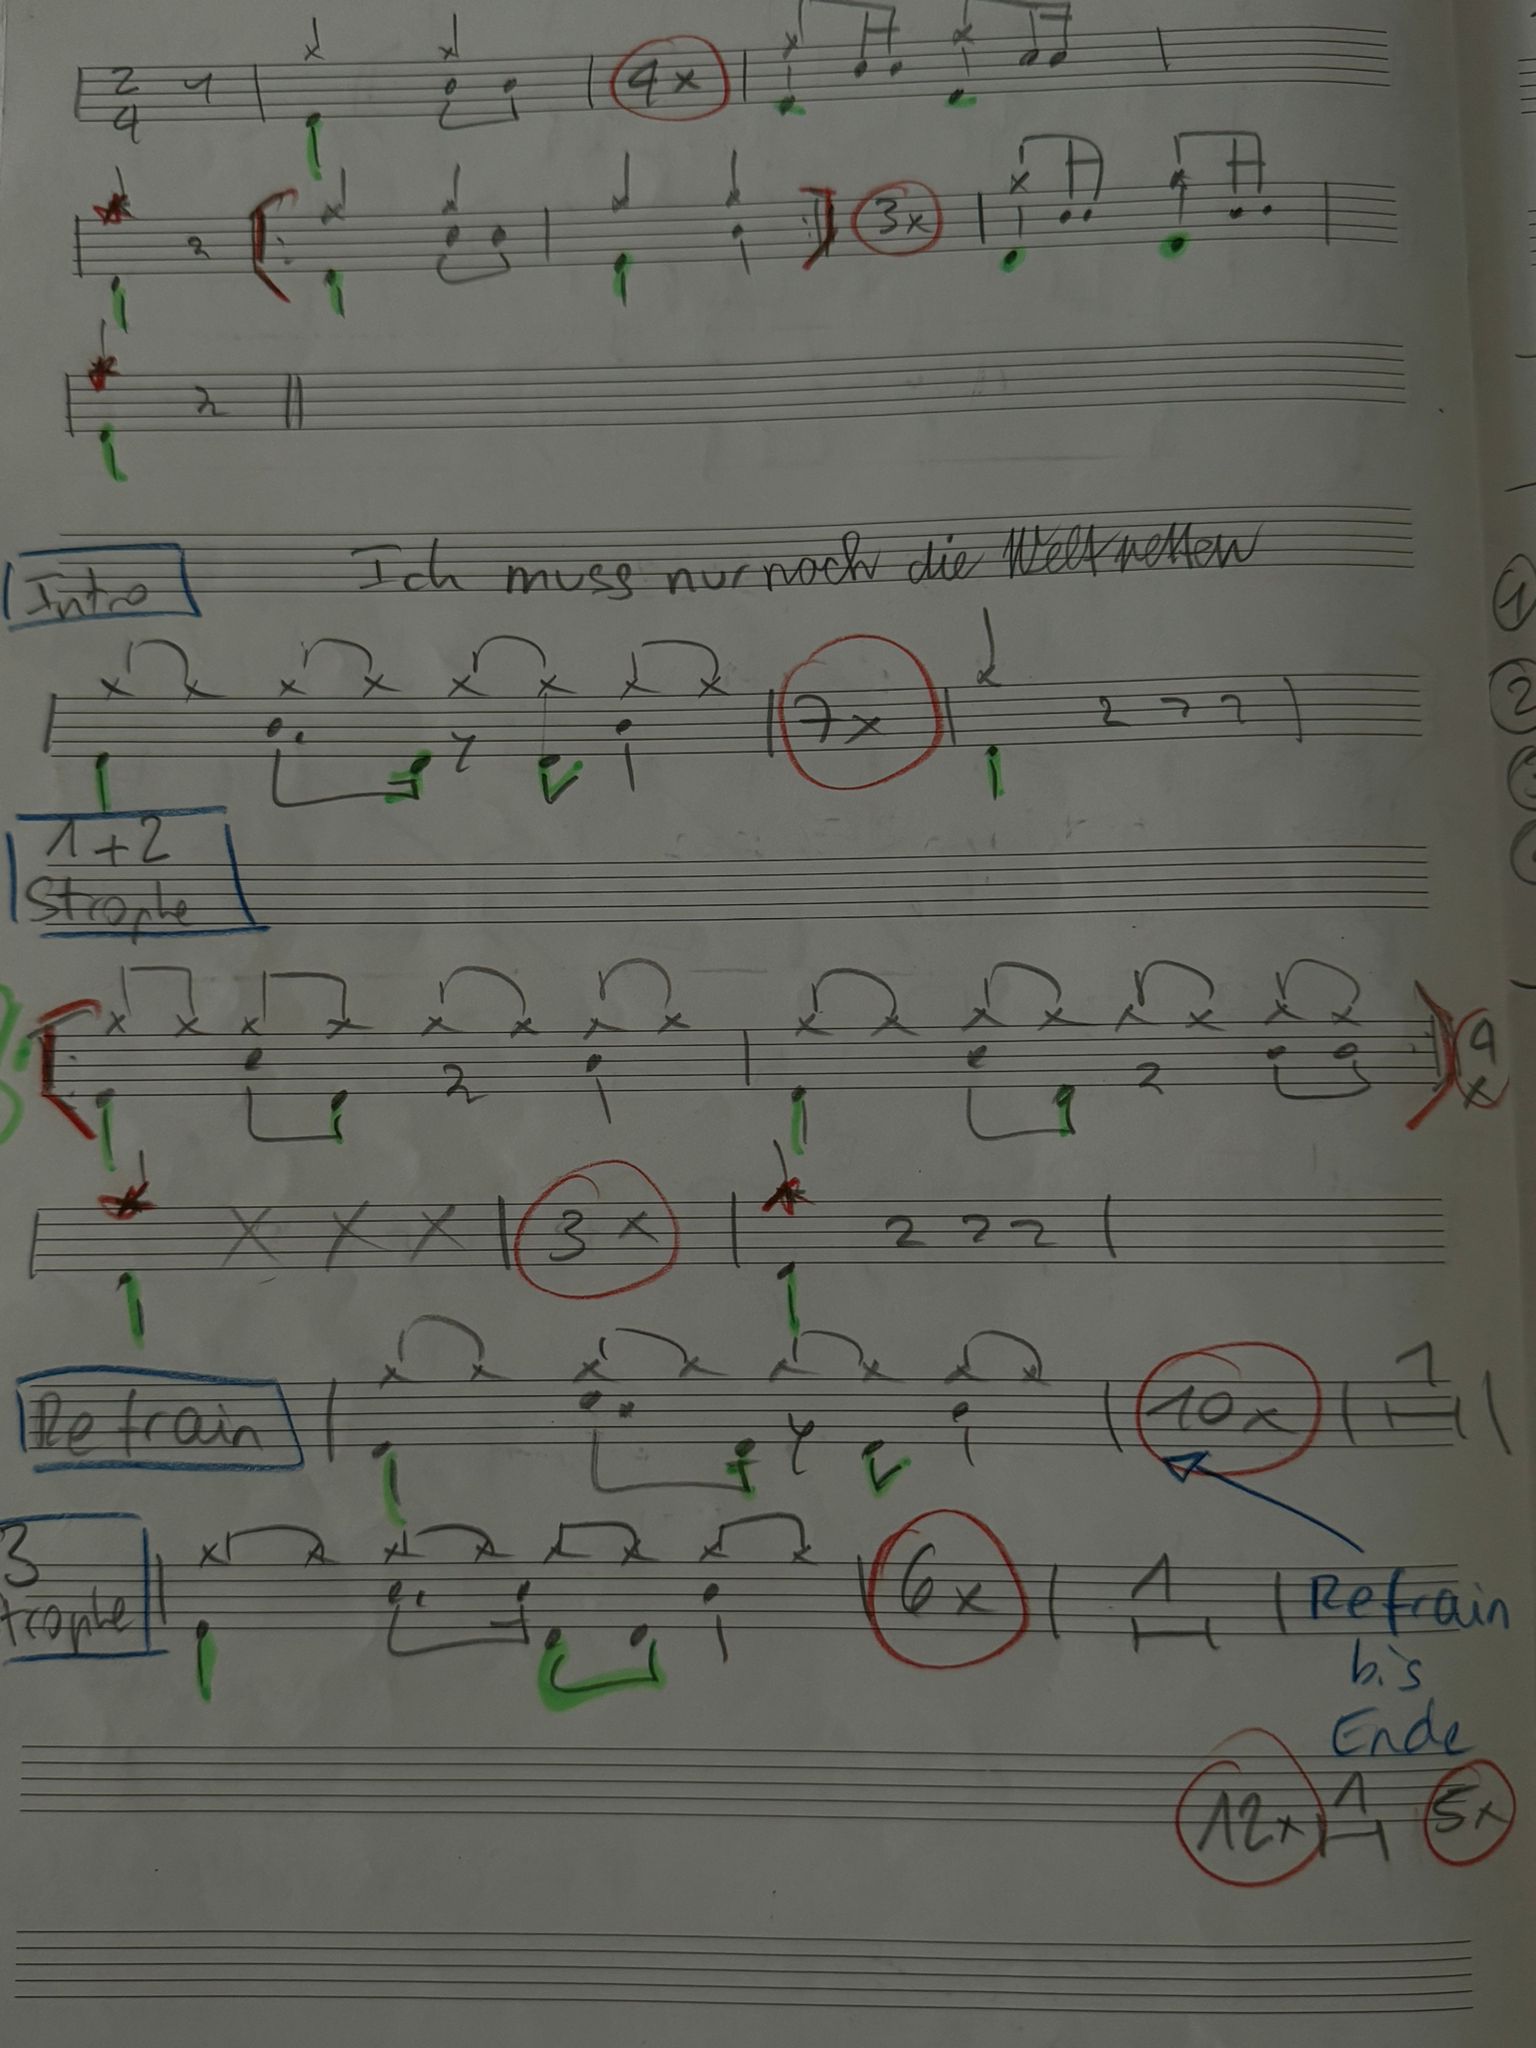 2
4
4x
3x
Intro
Ich muss nur noch die Welt retten
7x
1+2
Strophe
4
x
3x
Refrain
10x
1
3
trophe
6x
1
Refrain
bis
Ende
12x 1 5x
1
2